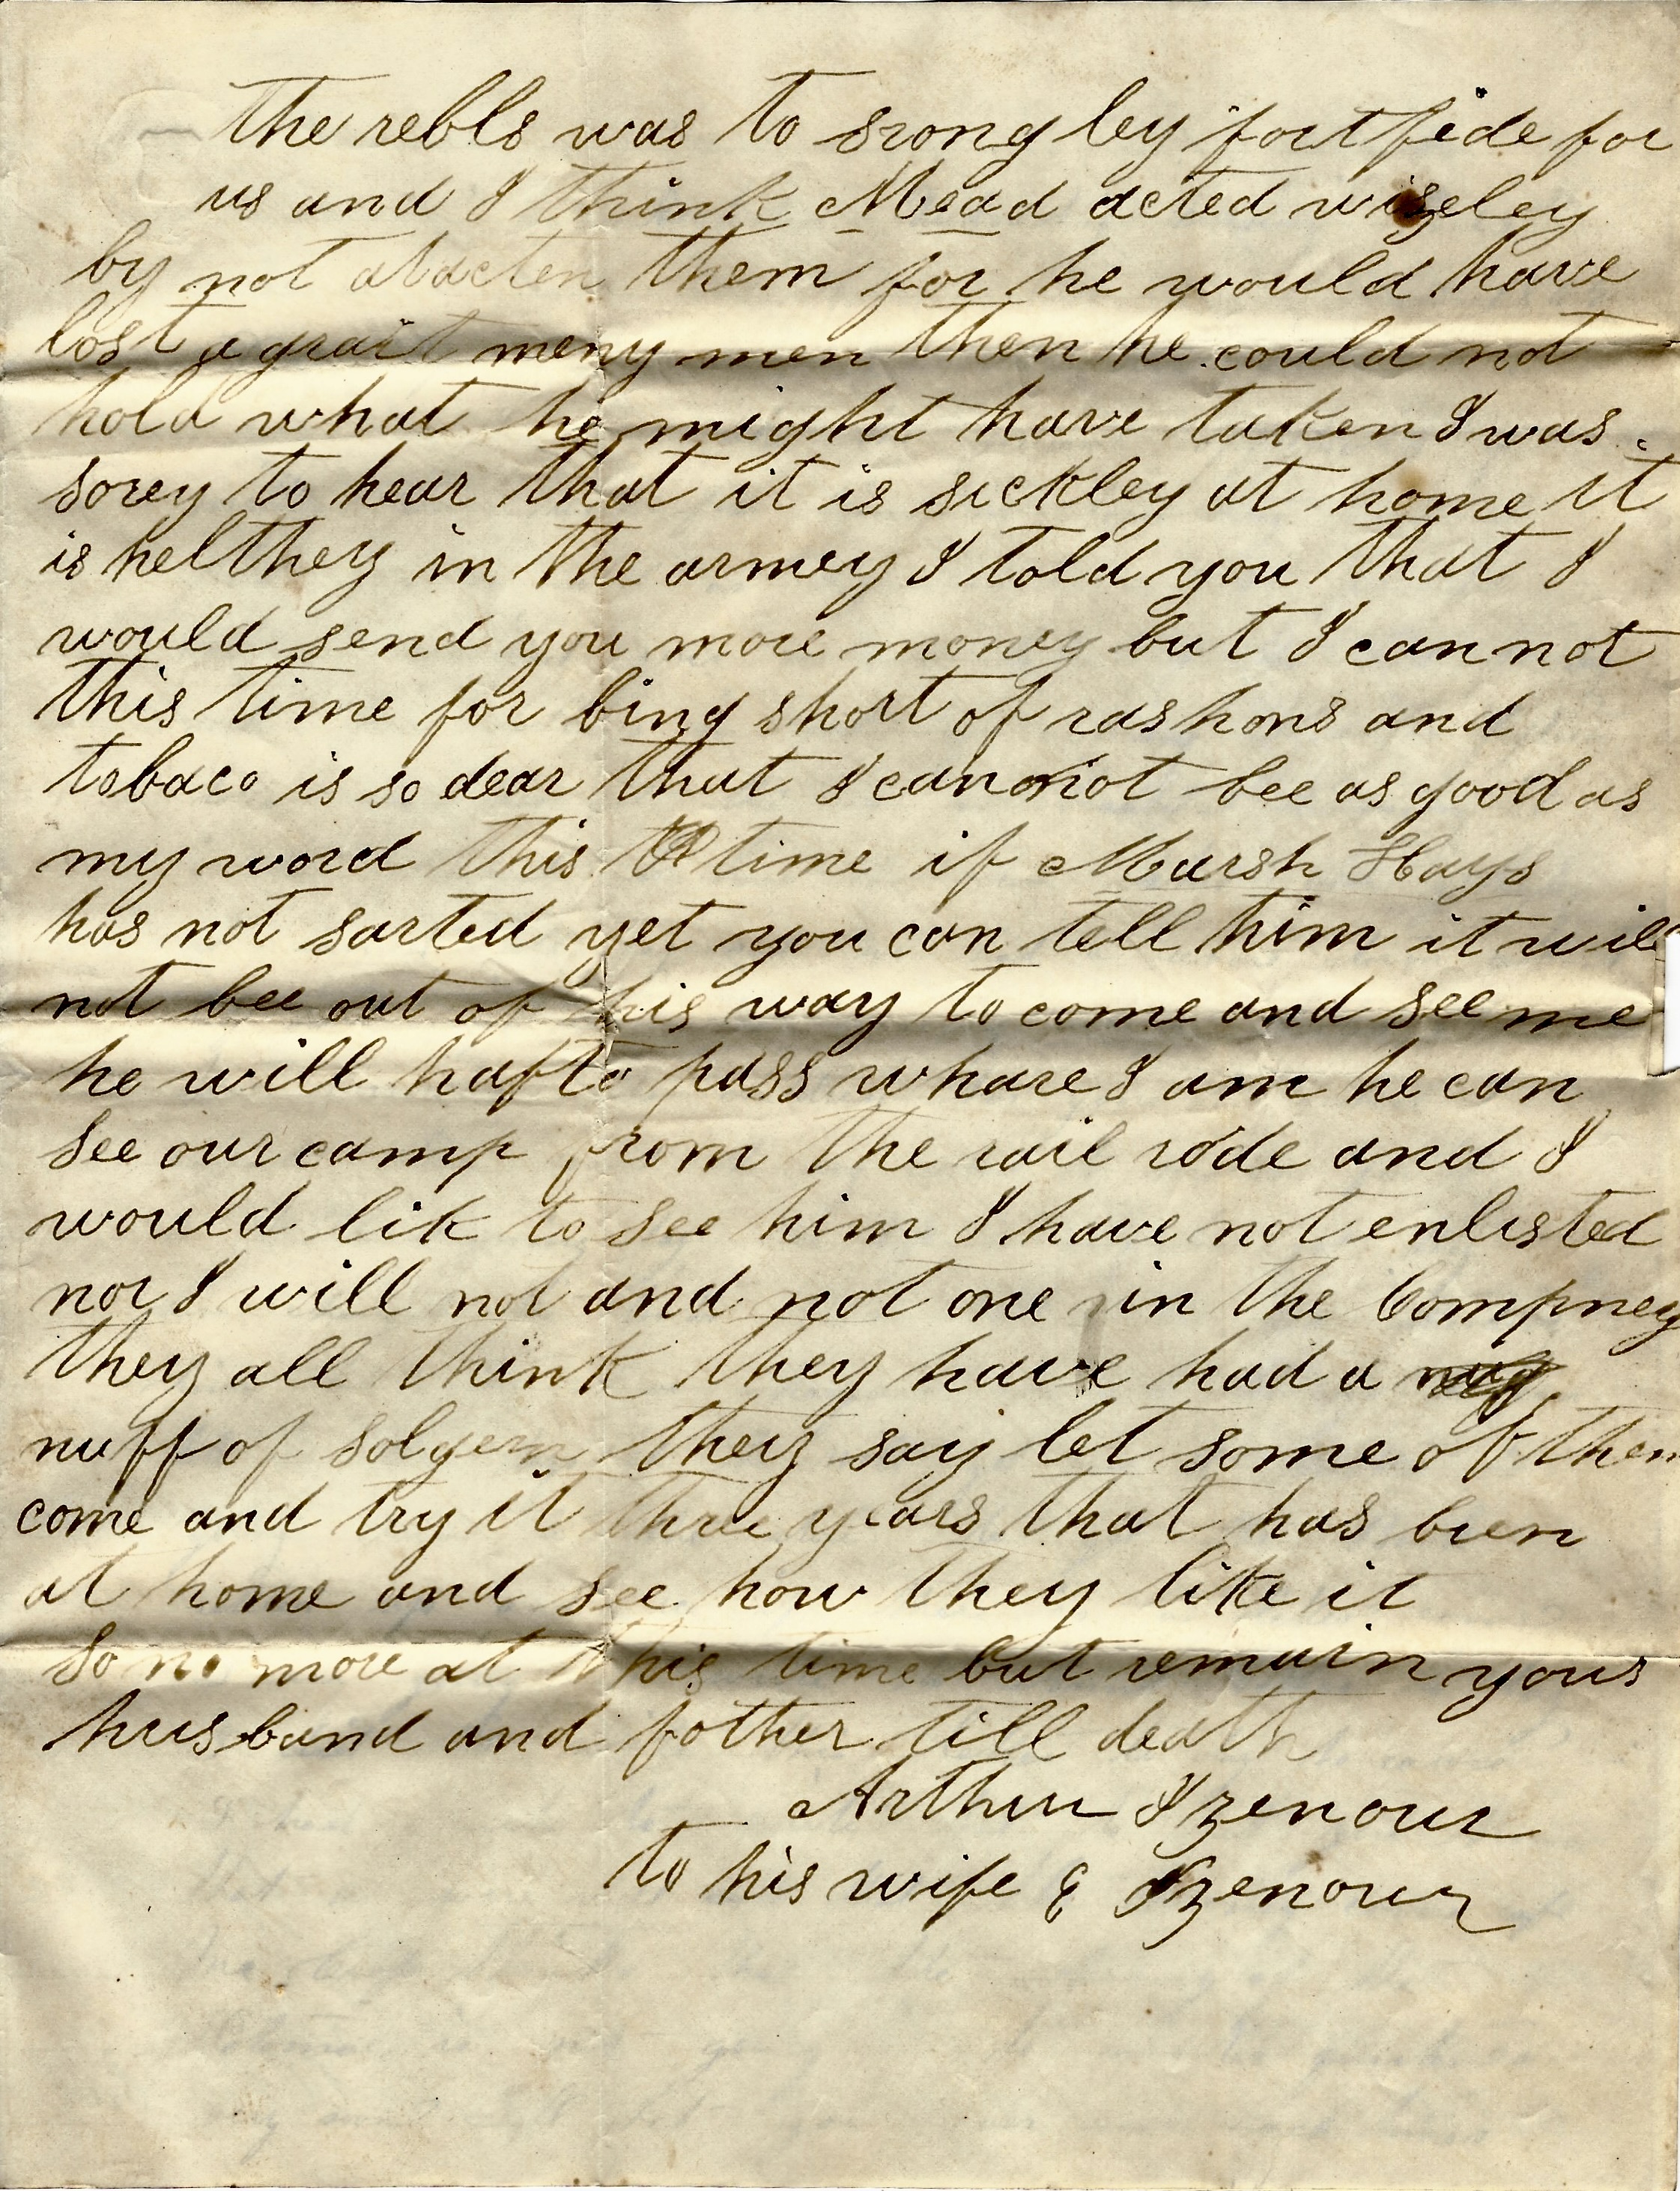 the rebls was to srong ley fortfide for
us and I think Mead acted wiseley
by not atacten them for he would have
lost a grait meny men then he could not
hold what he might have taken I was
sorey to hear that it is sickley at home it
is helthey in the armey I told you that I
would send you more money but I can not
this time for bing short of rashons and
tobaco is so dear that I can not bee as good as
my word this time if Marsh Hays
has not sarted yet you can tell him it will
not bee out of his way to come and see me
he will hafto pass whare I am he can
see our camp from the rail rode and I
would lik to see him I have not enlisted
nor I will not and not one in the Compney
they all think they have had a
nuff of solgern they say let some of them
come and try it three years that has bien
at home and see how they like it
so no more at this time but remain yours
husband and father till death
Arthur Izenour
to his wife E Izenour